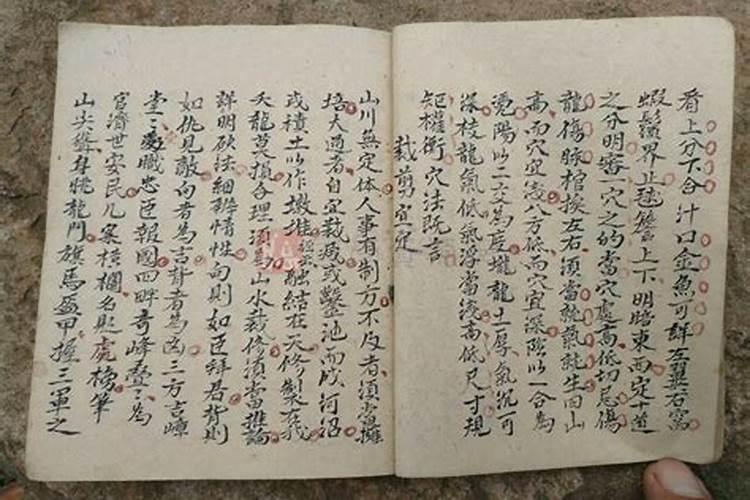 看上分下合汁口金魚可詳左翼右窩
蝦鬚界止毬簷上下明暗東西定十道
之分明審一穴之的當穴處高低切忌傷
龍傷脉棺挨左右須當就氣就生回山
高而穴宜淺八方低而穴宜深陰以一合為
憑陽以二交為度壠龍土厚氣沉可
深枝龍氣低氣浮當淺高低尺寸規
矩權衡穴法既言
裁剪宜定
山川無定体人事有制方不及者須當擁
培大過者自宜裁減或鑿池而成河沼
或積土以作墩堆融結在天修製在我
夭龍莫損合理須勘山水裁修須當推論
詳明砍法細辨情性向則如臣拜君背則
如仇見敵向者為吉背者為凶三方吉嶂
堂前職忠臣報國四畔奇峰疊疊為
官濟世安民几案横欄名題虎榜筆
山尖聳身跳龍門旗馬盔甲握三軍之